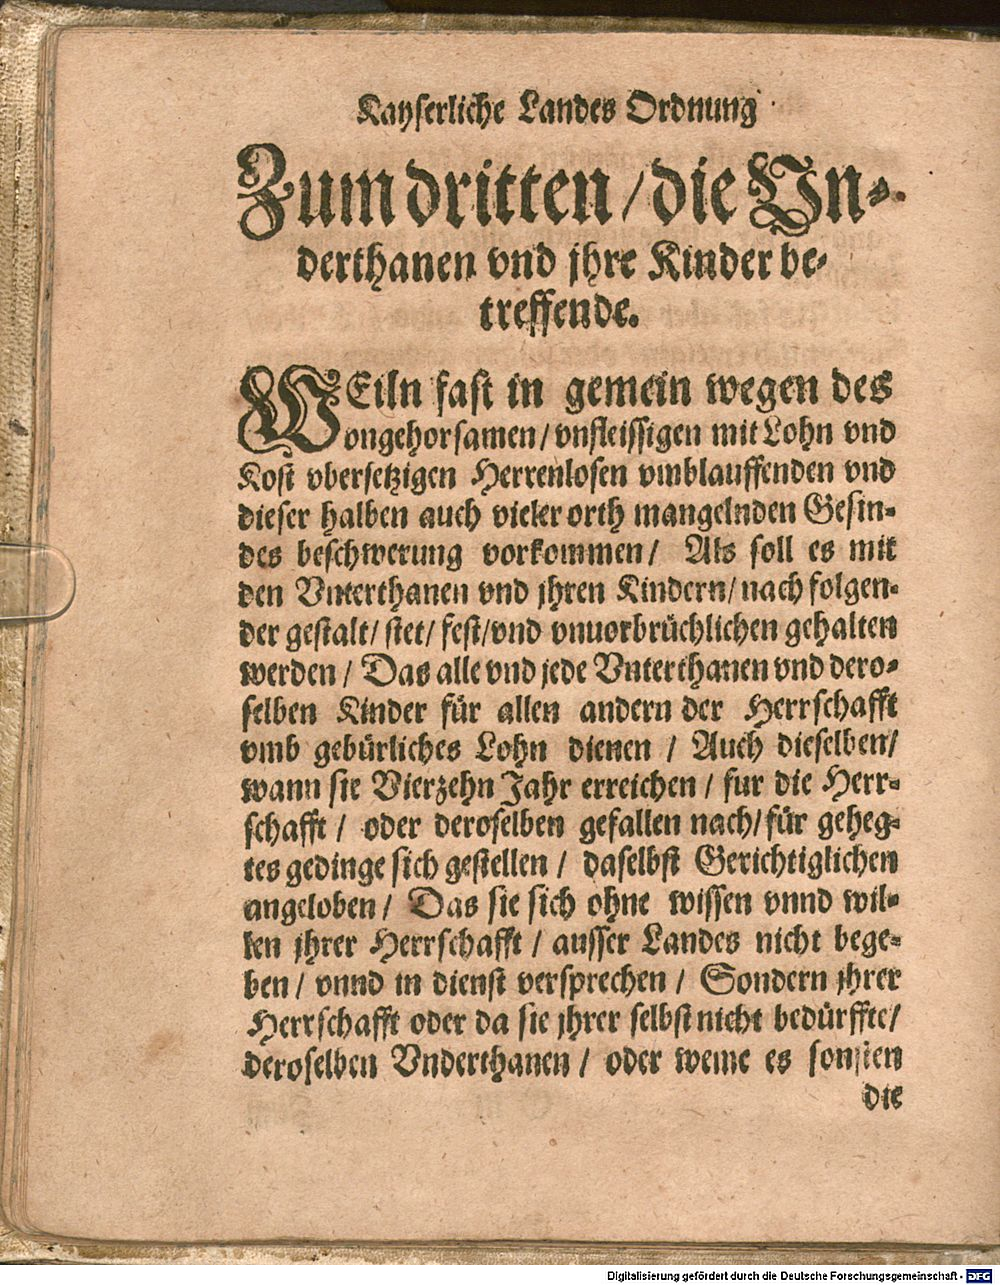 Kayserliche Landes Ordnung
Zum dritten / die Vn-
derthanen vnd jhre Kinder be-
treffende.
WEiln fast in gemein wegen des
ongehorsamen / vnfleissigen mit Lohn vnd
Kost vbersetzigen Herrenlosen vmblauffenden vnd
dieser halben auch vieler orth mangelnden Gesin-
des beschwerung vorkommen / Als soll es mit
den Vnterthanen vnd jhren Kindern / nach folgen-
der gestalt / stet / fest / vnd vnuorbrüchlichen gehalten
werden / Das alle vnd jede Vnterthanen vnd dero-
selben Kinder für allen andern der Herrschafft
vmb gebürliches Lohn dienen / Auch dieselben /
wann sie Vierzehn Jahr erreichen / fur die Herr-
schafft / oder deroselben gefallen nach / für geheg-
tes gedinge sich gestellen / daselbst Gerichtiglichen
angeloben / Das sie sich ohne wissen vnnd wil-
len jhrer Herrschafft / ausser Landes nicht bege-
ben / vnnd in dienst versprechen / Sondern jhrer
Herrschafft oder da sie jhrer selbst nicht bedürffte /
deroselben Vnderthanen / oder weme es sonsten
die
Digitalisierung gefördert durch die Deutsche Forschungsgemeinschaft - DFG